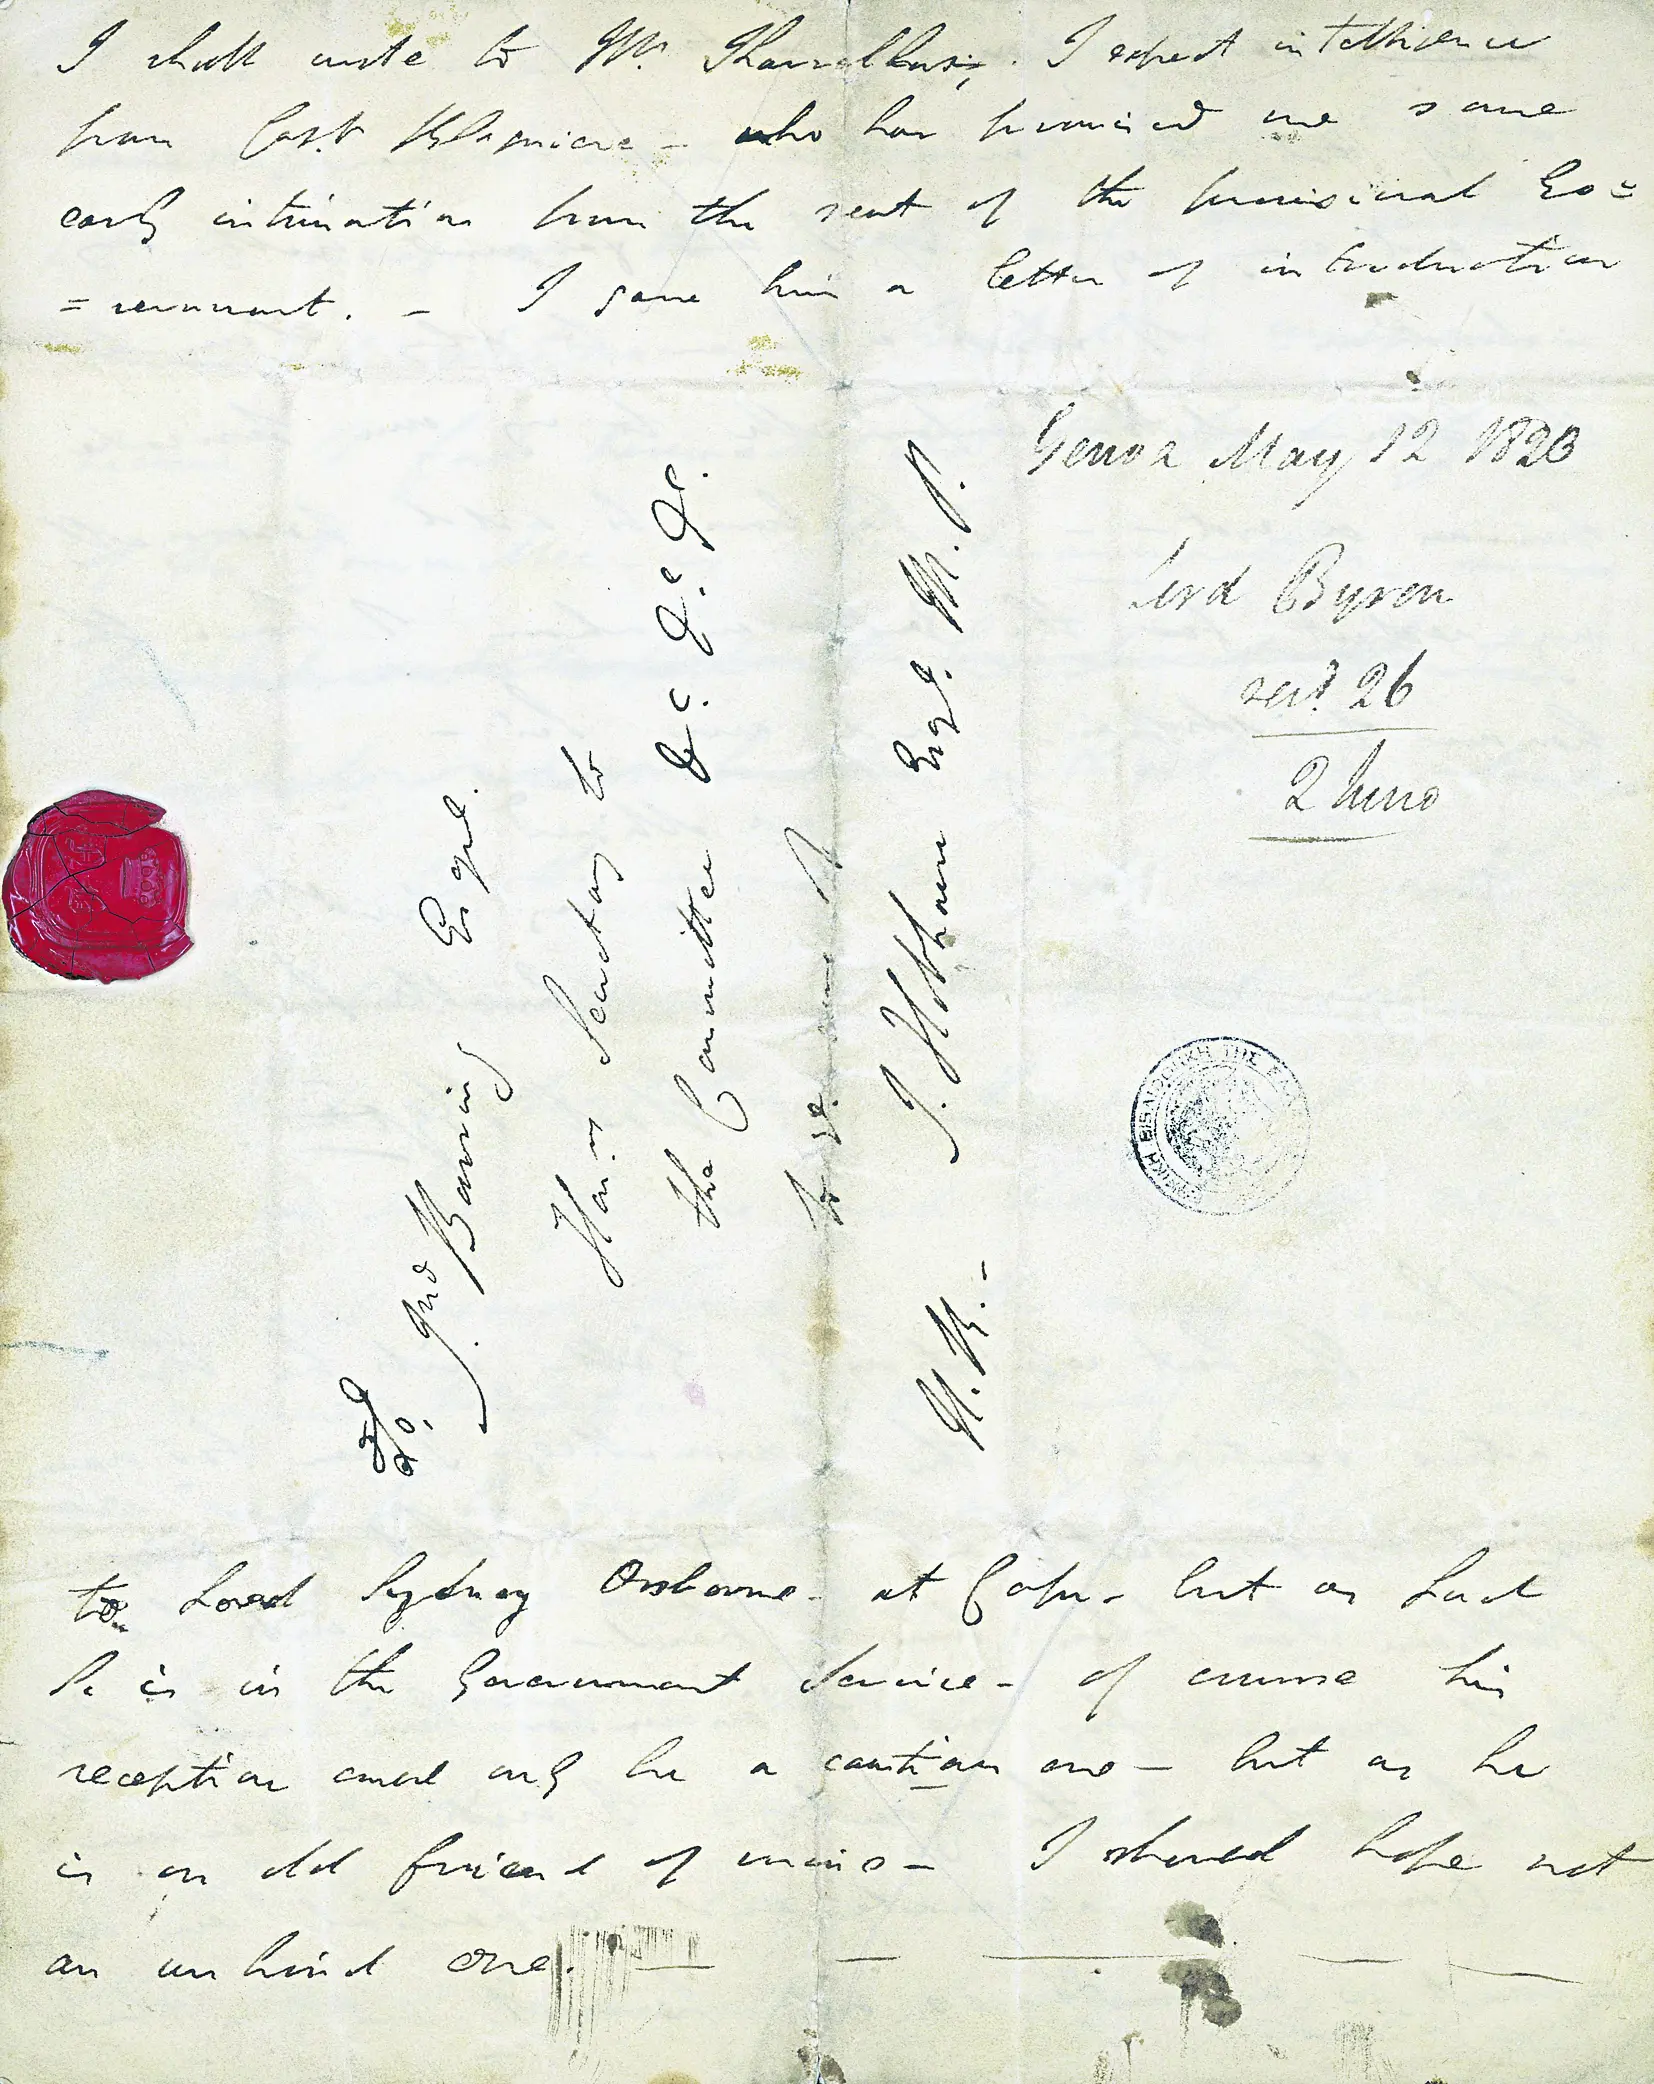 I shall write to Mr.
I expect intelligence
from Capt Blaquiere - who has promised me some
early intimation from the seat of the provisional Go=
=vernment. - I gave him a letter of introduction
Genoa May 12 1823
Lord Byron
recd. 26
2 Juno
To.
Jno Bowring Esqre.
Hon.y Secretary to
the Committee &c. &c. &c.
to the care of
J. Hobhouse Esqre. M. P.
ΒΙΒΛΙΟΘΗΚΗ ΤΗΣ
to Lord Sydney Osborne - at Corfu - but as Lord
S. is in the Government Service - of course his
reception could only be a cautious one - but as he
is an old friend of mine - I should hope not
an unkind one. -